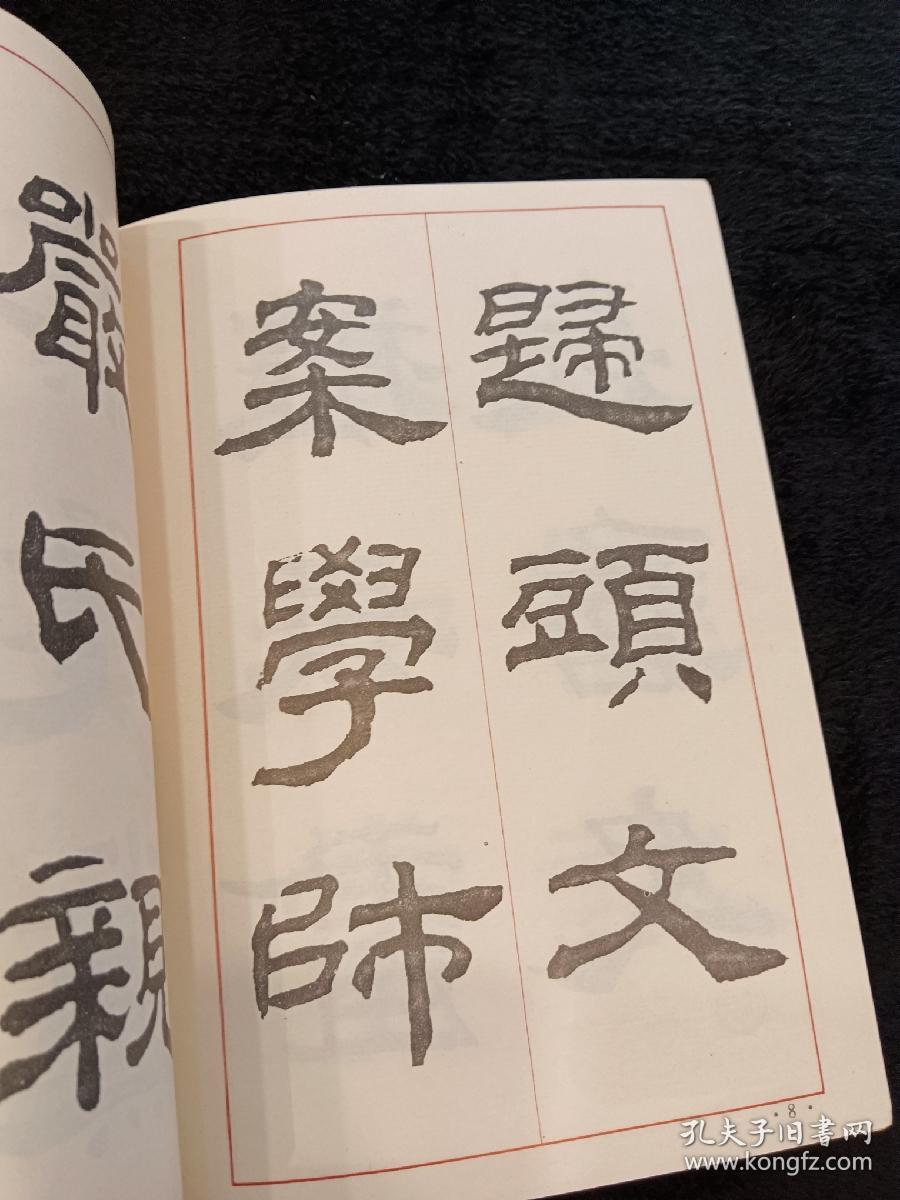 歸頭文
案學師
嚴氏親
8
孔夫子旧書网
www.kongfz.com